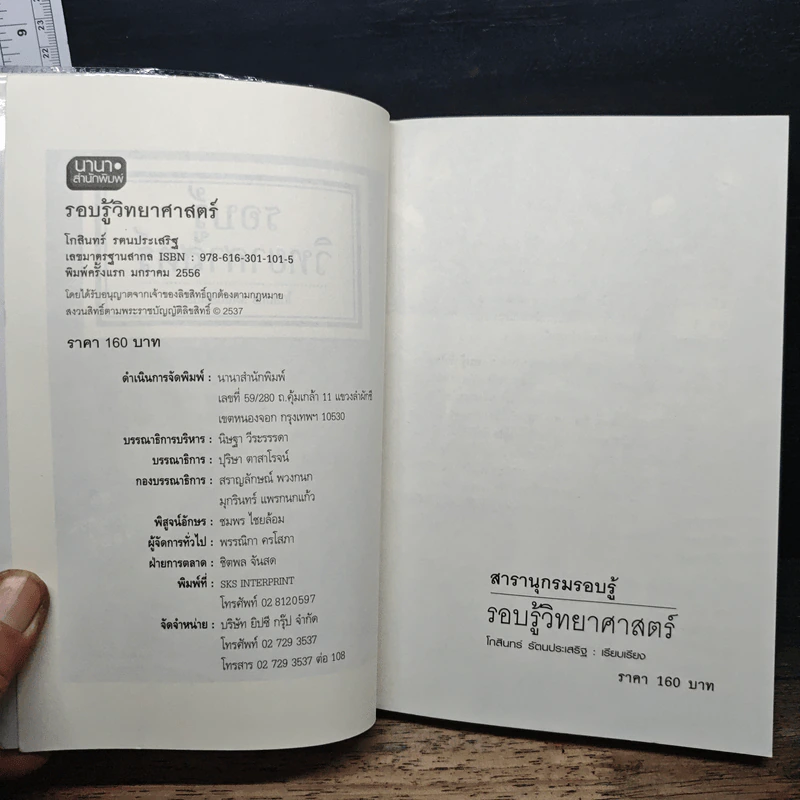 9
22
23
นานา
สำนักพิมพ์
รอบรู้วิทยาศาสตร์
โกสินทร์ รตนประเสริฐ
เลขมาตรฐานสากล ISBN : 978-616-301-101-5
พิมพ์ครั้งแรก มกราคม 2556
โดยได้รับอนุญาตจากเจ้าของลิขสิทธิ์ถูกต้องตามกฎหมาย
สงวนสิทธิ์ตามพระราชบัญญัติลิขสิทธิ์ © 2537
ราคา 160 บาท
ดำเนินการจัดพิมพ์ : นานาสำนักพิมพ์
เลขที่ 59/280 ถ.คุ้มเกล้า 11 แขวงลำผักชี
เขตหนองจอก กรุงเทพฯ 10530
บรรณาธิการบริหาร : นิษฐา วีระธรรดา
บรรณาธิการ : ปุริษา ตาสาโรจน์
กองบรรณาธิการ : สราญลักษณ์ พวงกนก
มุกรินทร์ แพรกนกแก้ว
พิสูจน์อักษร : ชมพร ไชยล้อม
ผู้จัดการทั่วไป : พรรณิกา ครโสภา
ฝ่ายการตลาด : ชิตพล จันสด
พิมพ์ที่ : SKS INTERPRINT
โทรศัพท์ 02 8120597
จัดจำหน่าย : บริษัท ยิปซี กรุ๊ป จำกัด
โทรศัพท์ 02 729 3537
โทรสาร 02 729 3537 ต่อ 108
สารานุกรมรอบรู้
รอบรู้วิทยาศาสตร์
โกสินทร์ รัตนประเสริฐ : เรียบเรียง
ราคา 160 บาท